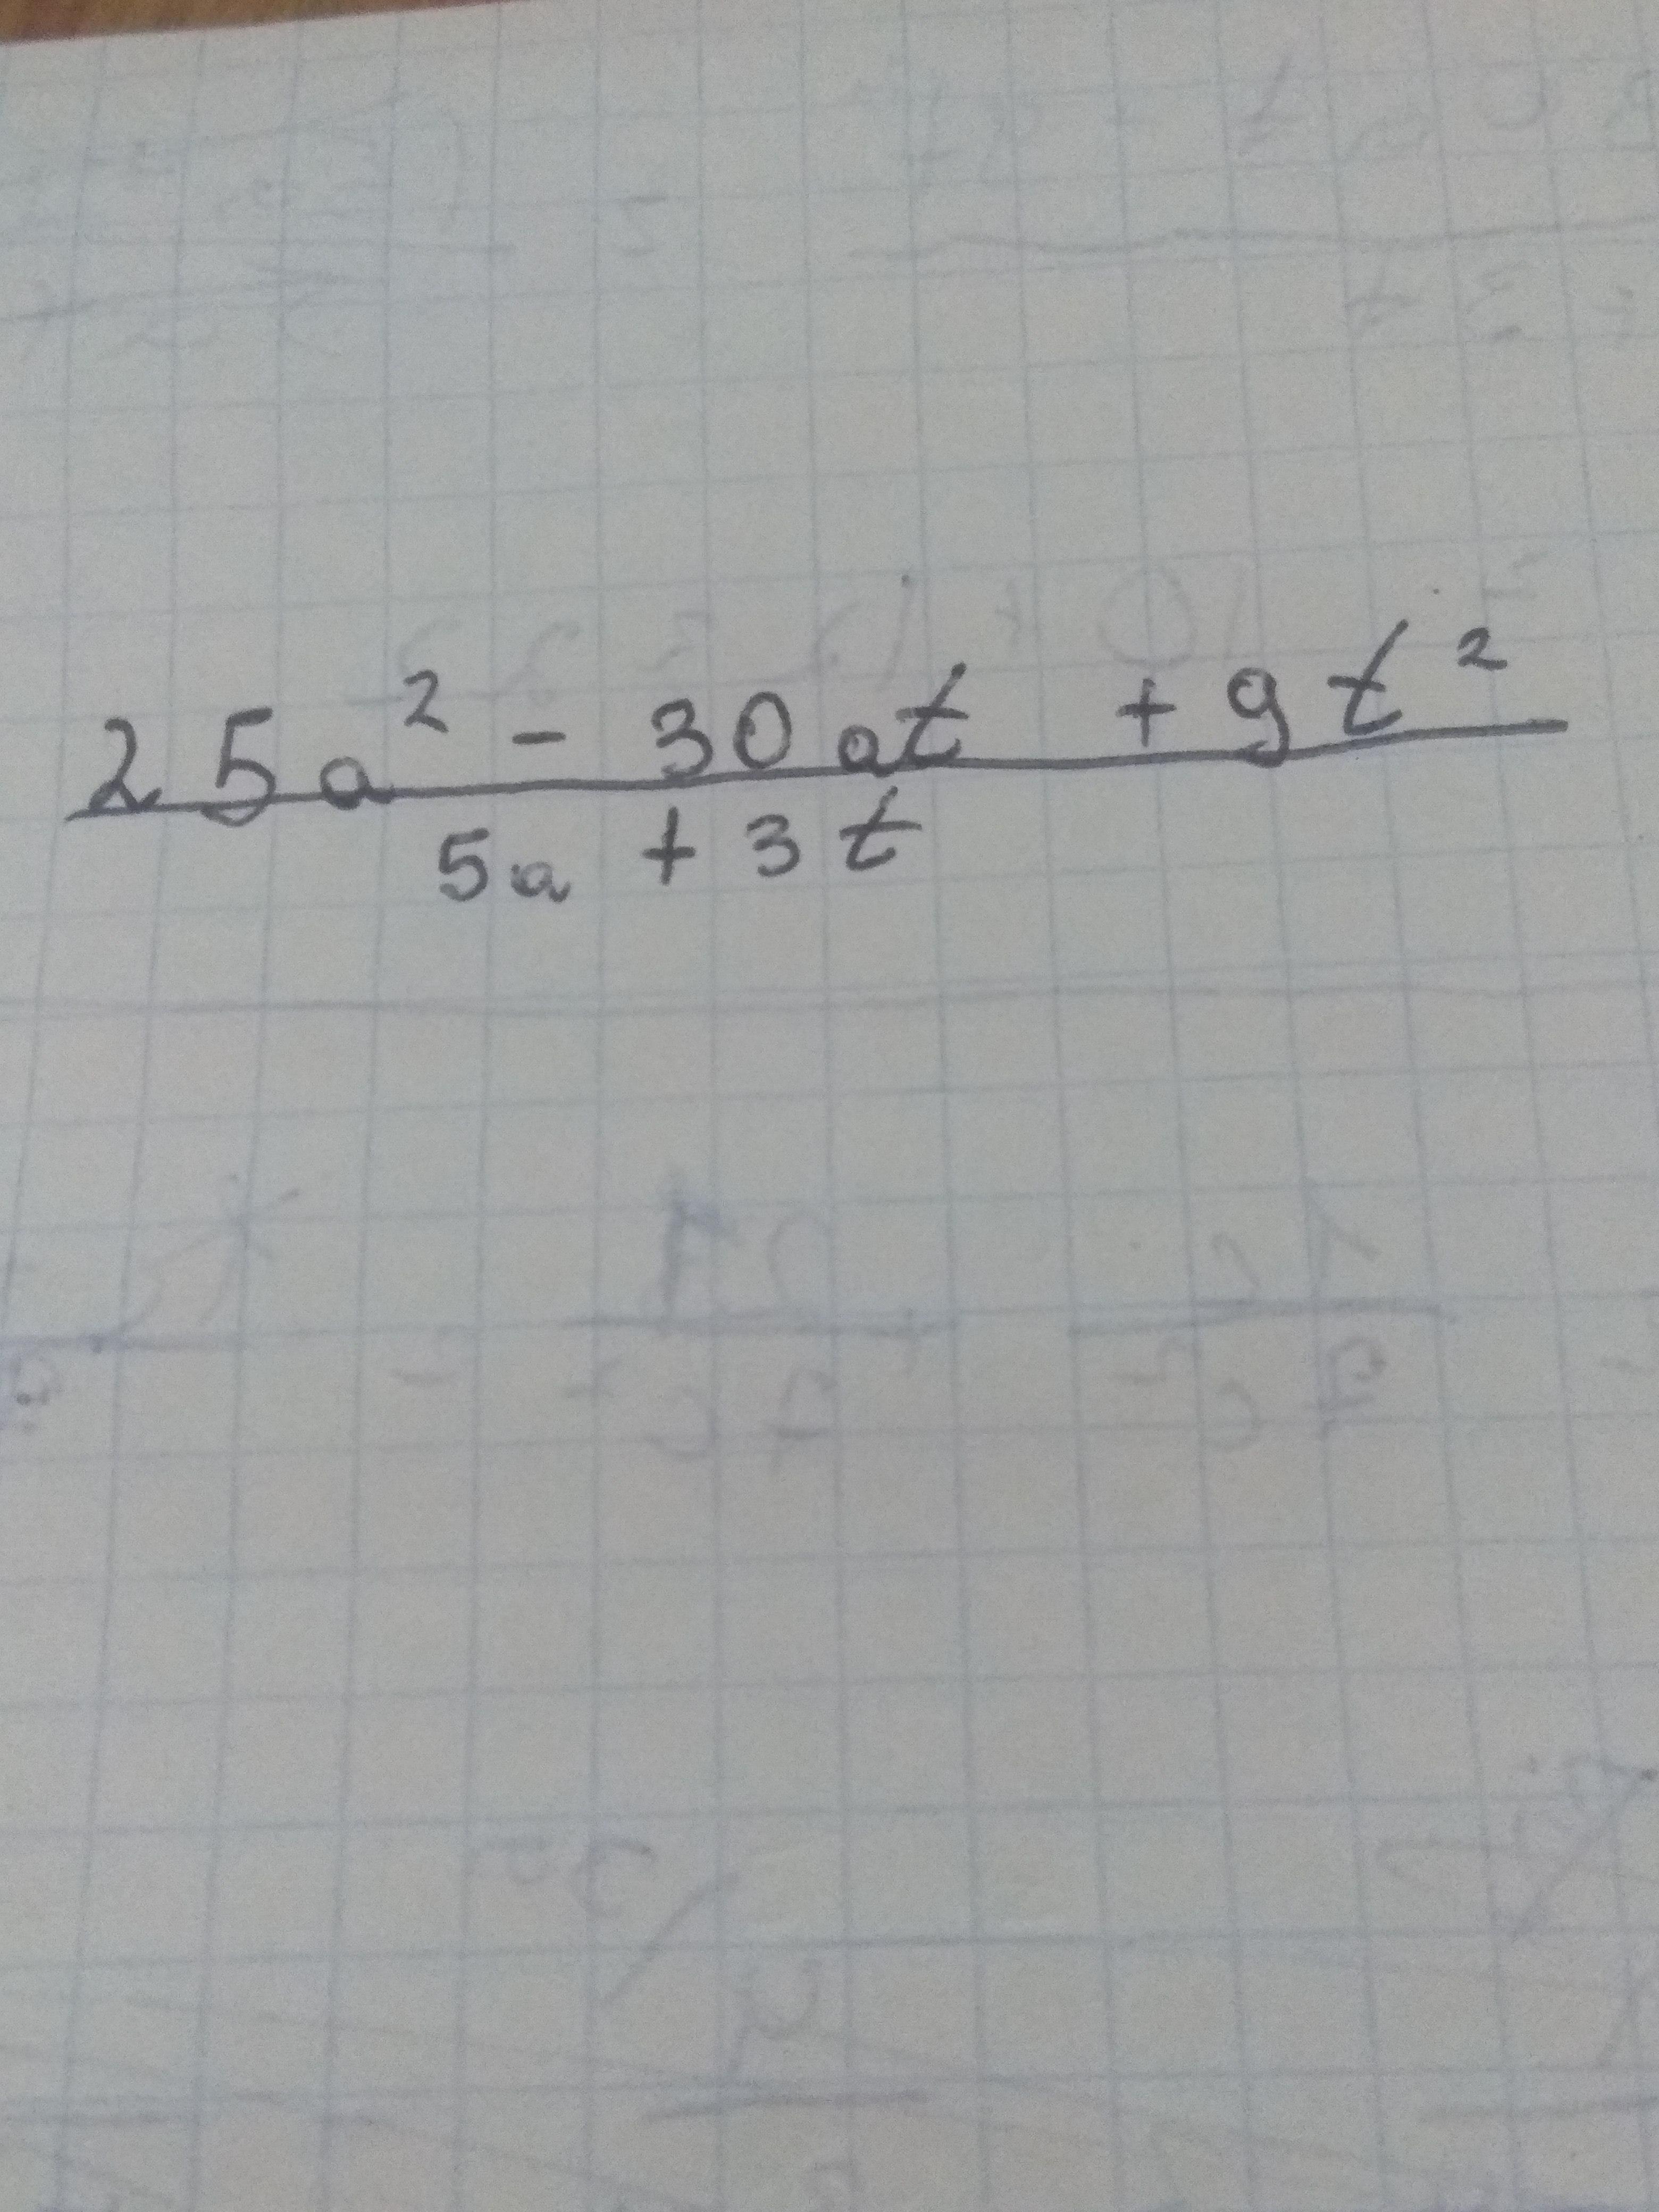 25a² - 30at + 9t²
5a + 3t